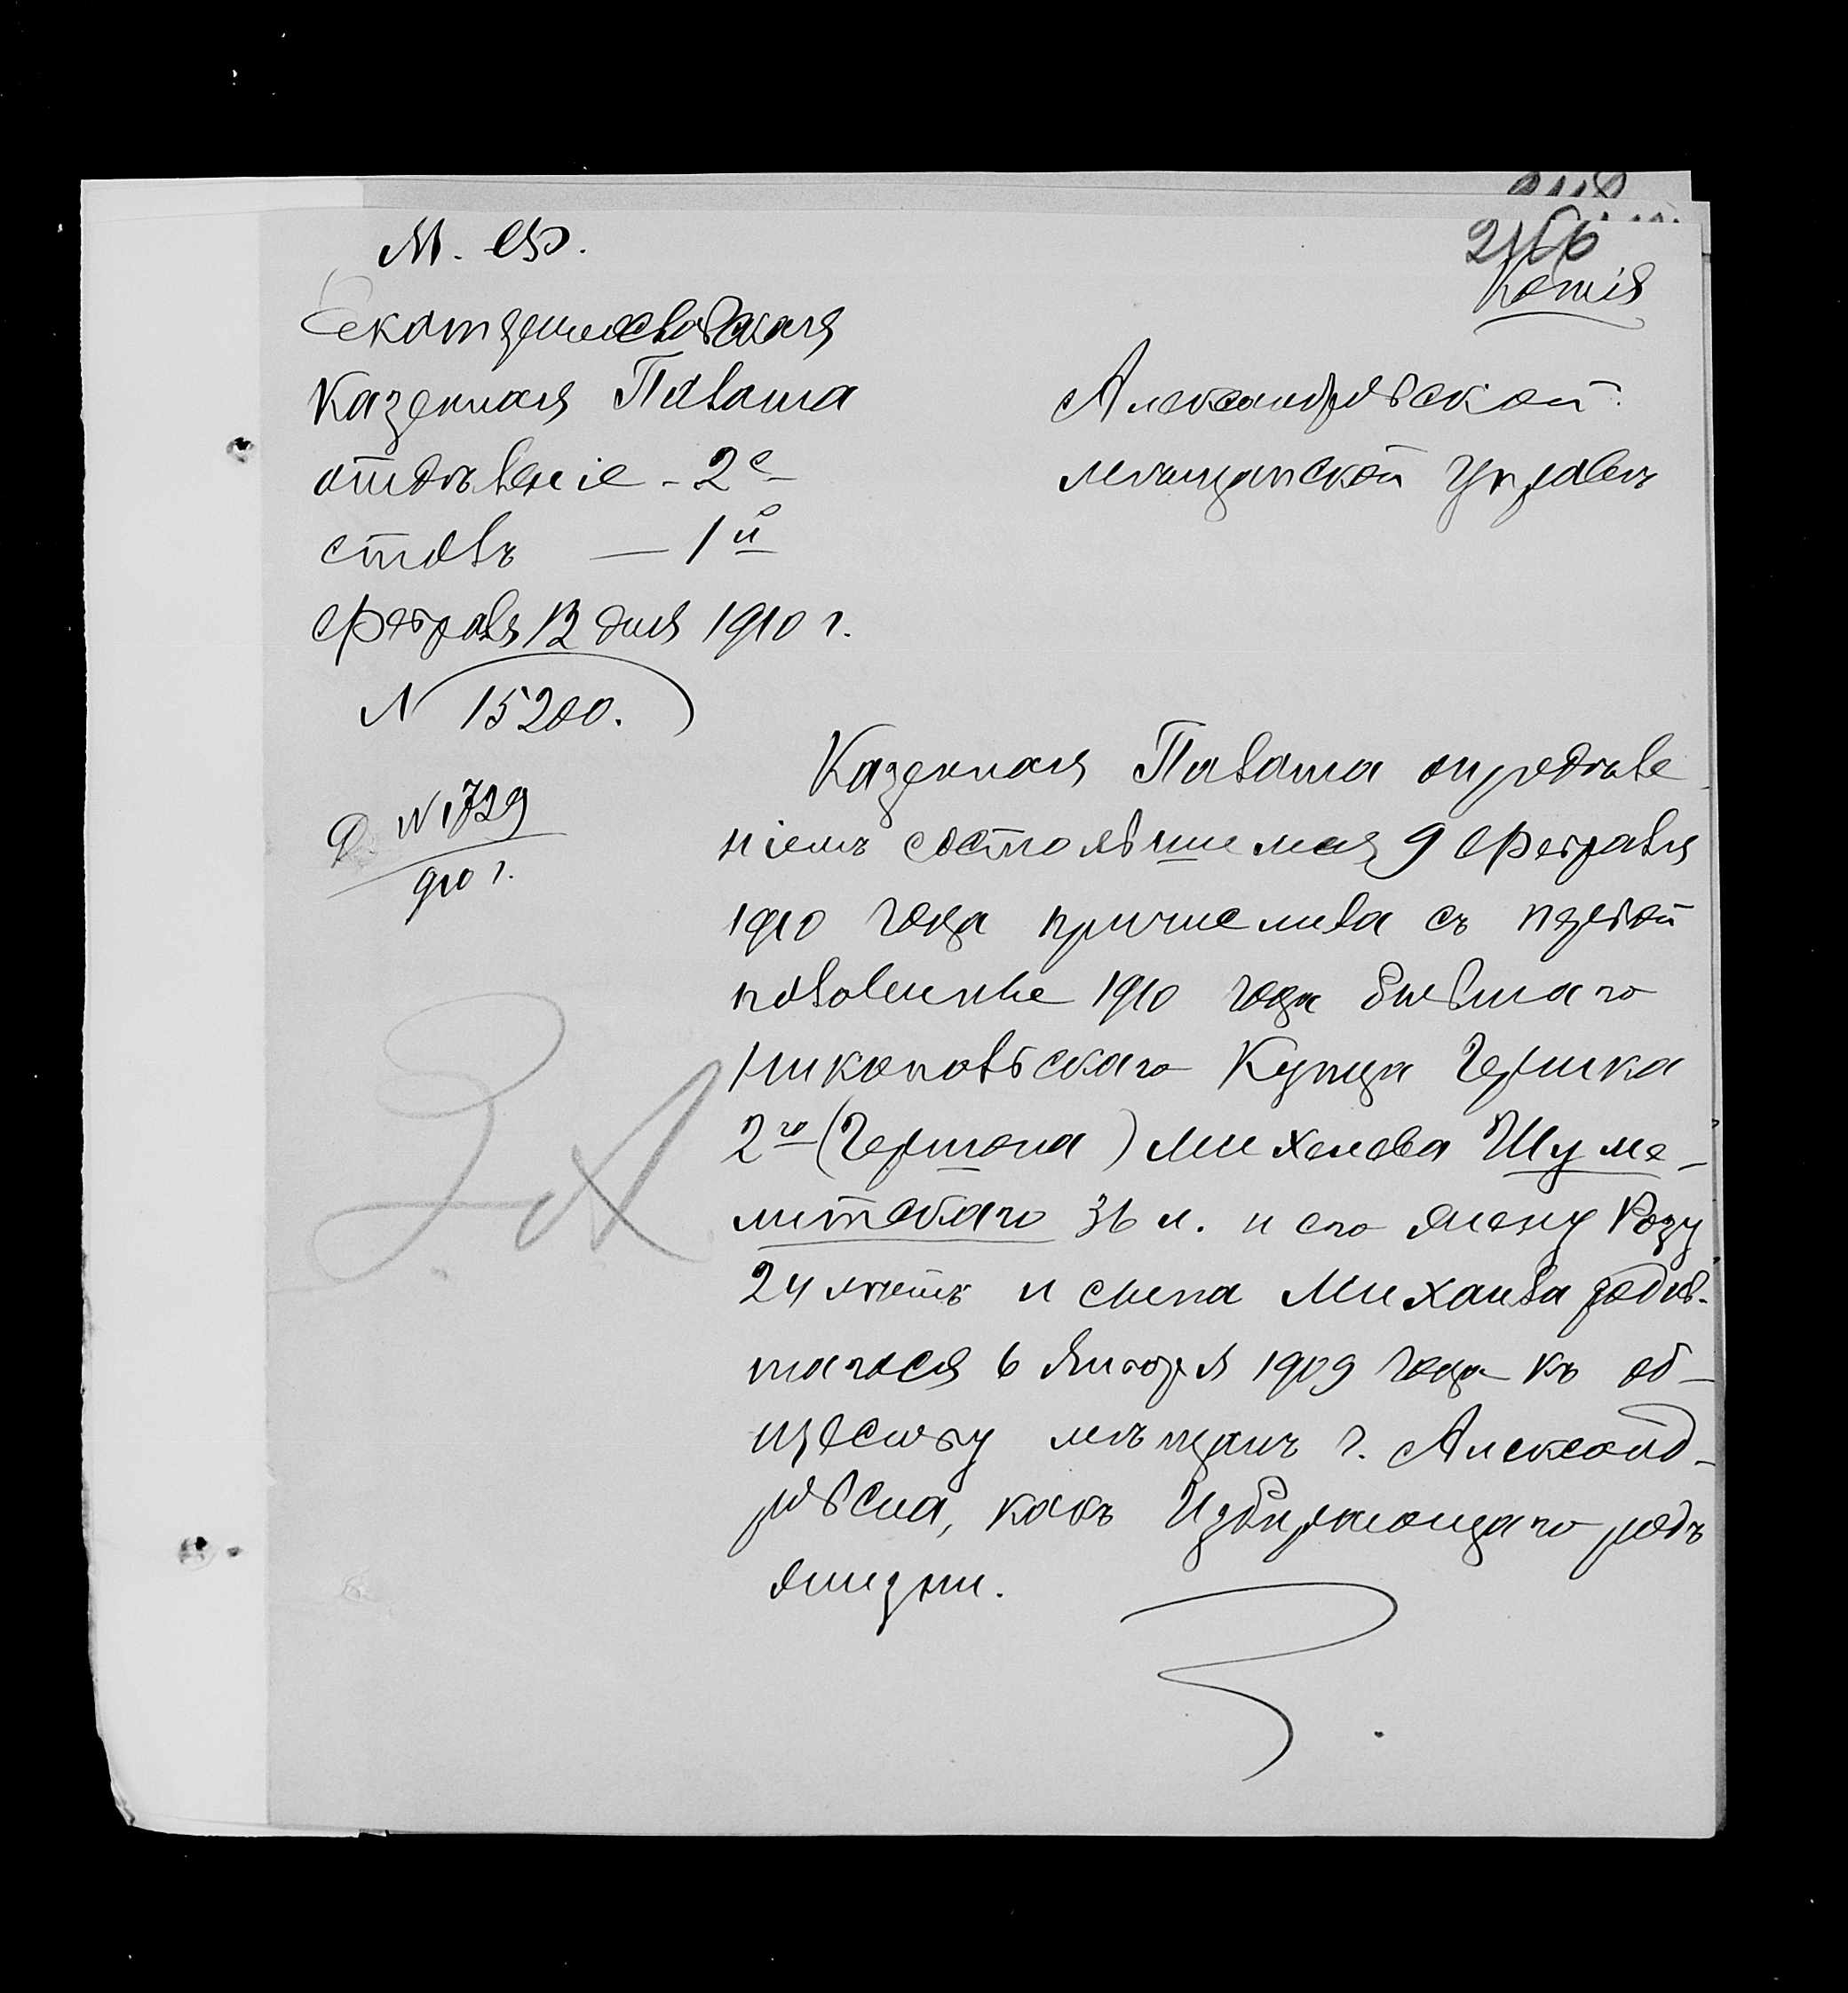 М. Ф.
Екатеринославская
Казенная Палата
отдѣленіе - 2е
столъ — 1й
Февраля 13 дня 1910 г.
N 15200.
Д. N 1729
910 г.
2166
Копія
Александровской
мѣщанской Управѣ
Казенная Палата опредѣле
ніемъ состоявшимся 9 Февраля
1910 года причислила съ первой
половины 1910 года бывшаго
Никопольскаго Купца Гершка
2го (Гершона) Михелева Шуме-
литскаго 36 л. и его жену Розу
24 лѣтъ и сына Михаила родив-
шагося 6 Января 1909 года къ об-
ществу мѣщанъ г. Александ-
ровска, какъ Избирающаго родъ
жизни.